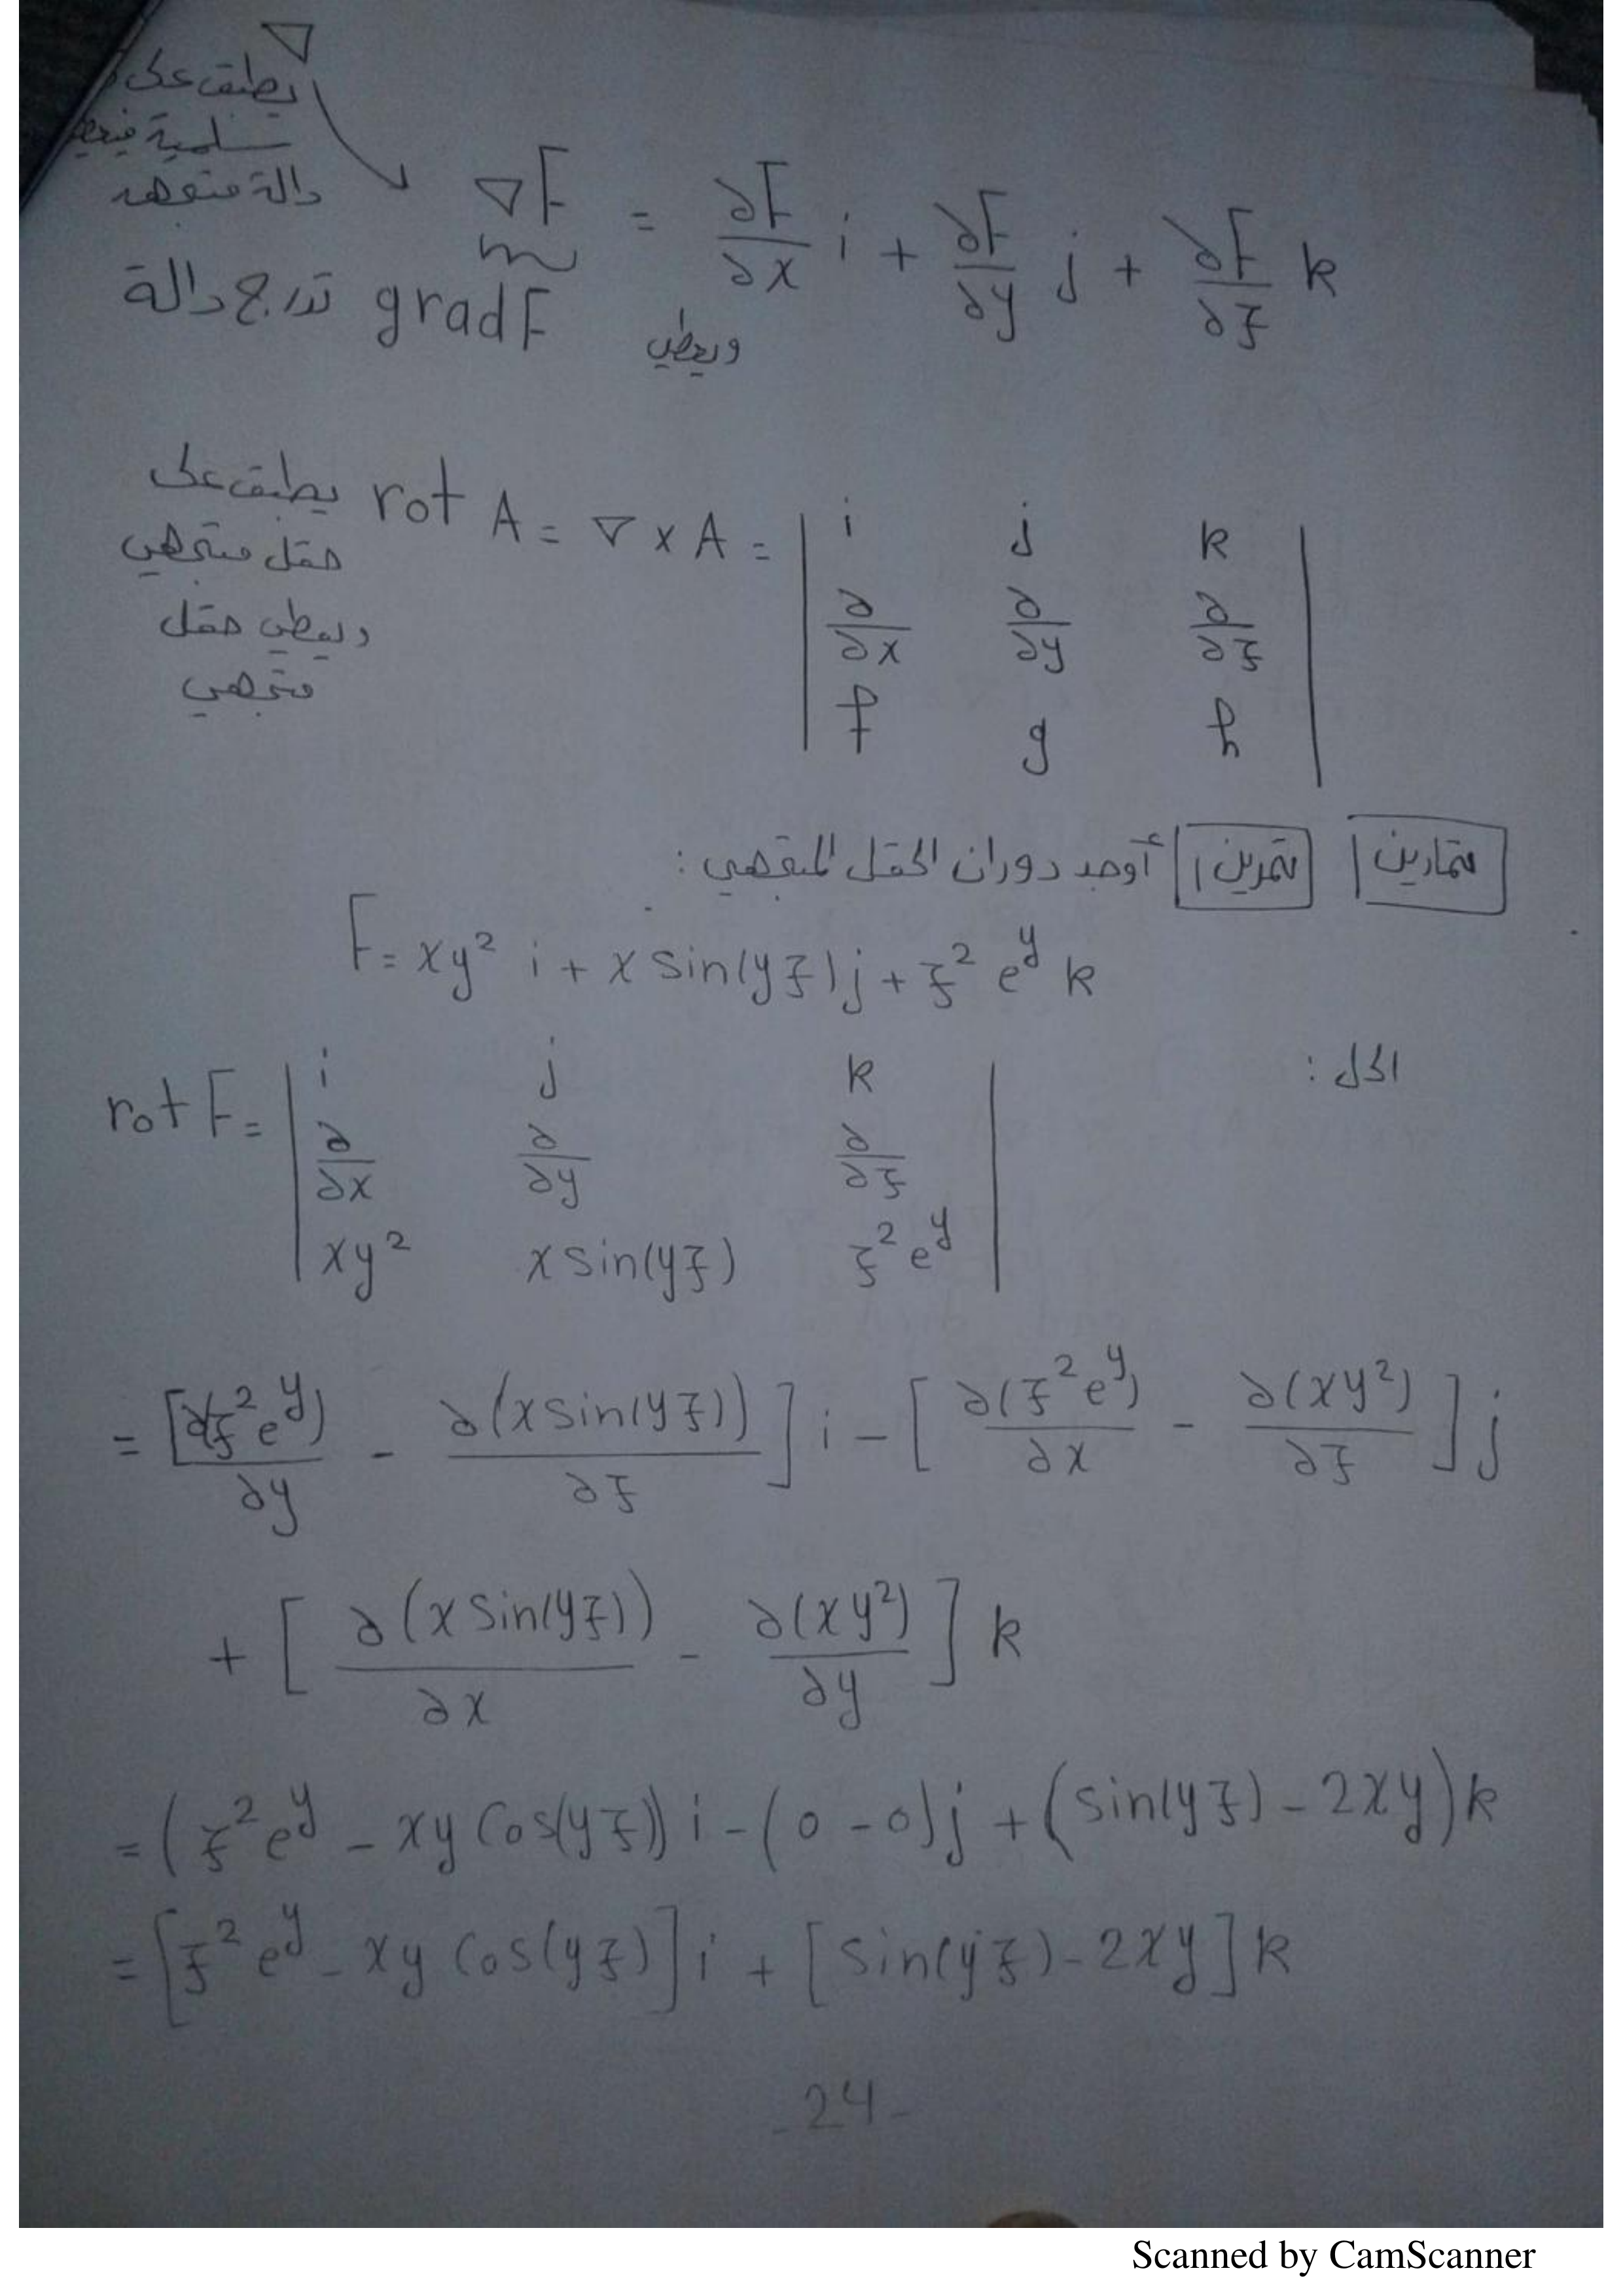 ∇
يطبق على
سلمية فيعطي
دالة متجهه
∇F = ∂F/∂x i + ∂F/∂y j + ∂F/∂z k
تدرج دالة gradF ويعطي
يطبق على rot A = ∇ x A = | i j k |
حقل متجهي
ويعطي حقل | ∂/∂x ∂/∂y ∂/∂z |
متجهي
| f g h |
تمارين تمرين 1 أوجد دوران الحقل المتجهي :
F = xy² i + x sin(yz) j + z² e^y k
الحل :
rot F = | i j k |
| ∂/∂x ∂/∂y ∂/∂z |
| xy² x sin(yz) z² e^y |
= [∂(z² e^y)/∂y - ∂(x sin(yz))/∂z] i - [∂(z² e^y)/∂x - ∂(xy²)/∂z] j
+ [∂(x sin(yz))/∂x - ∂(xy²)/∂y] k
= (z² e^y - xy Cos(yz)) i - (0 - 0) j + (sin(yz) - 2xy) k
= [z² e^y - xy Cos(yz)] i + [sin(yz) - 2xy] k
-24-
Scanned by CamScanner